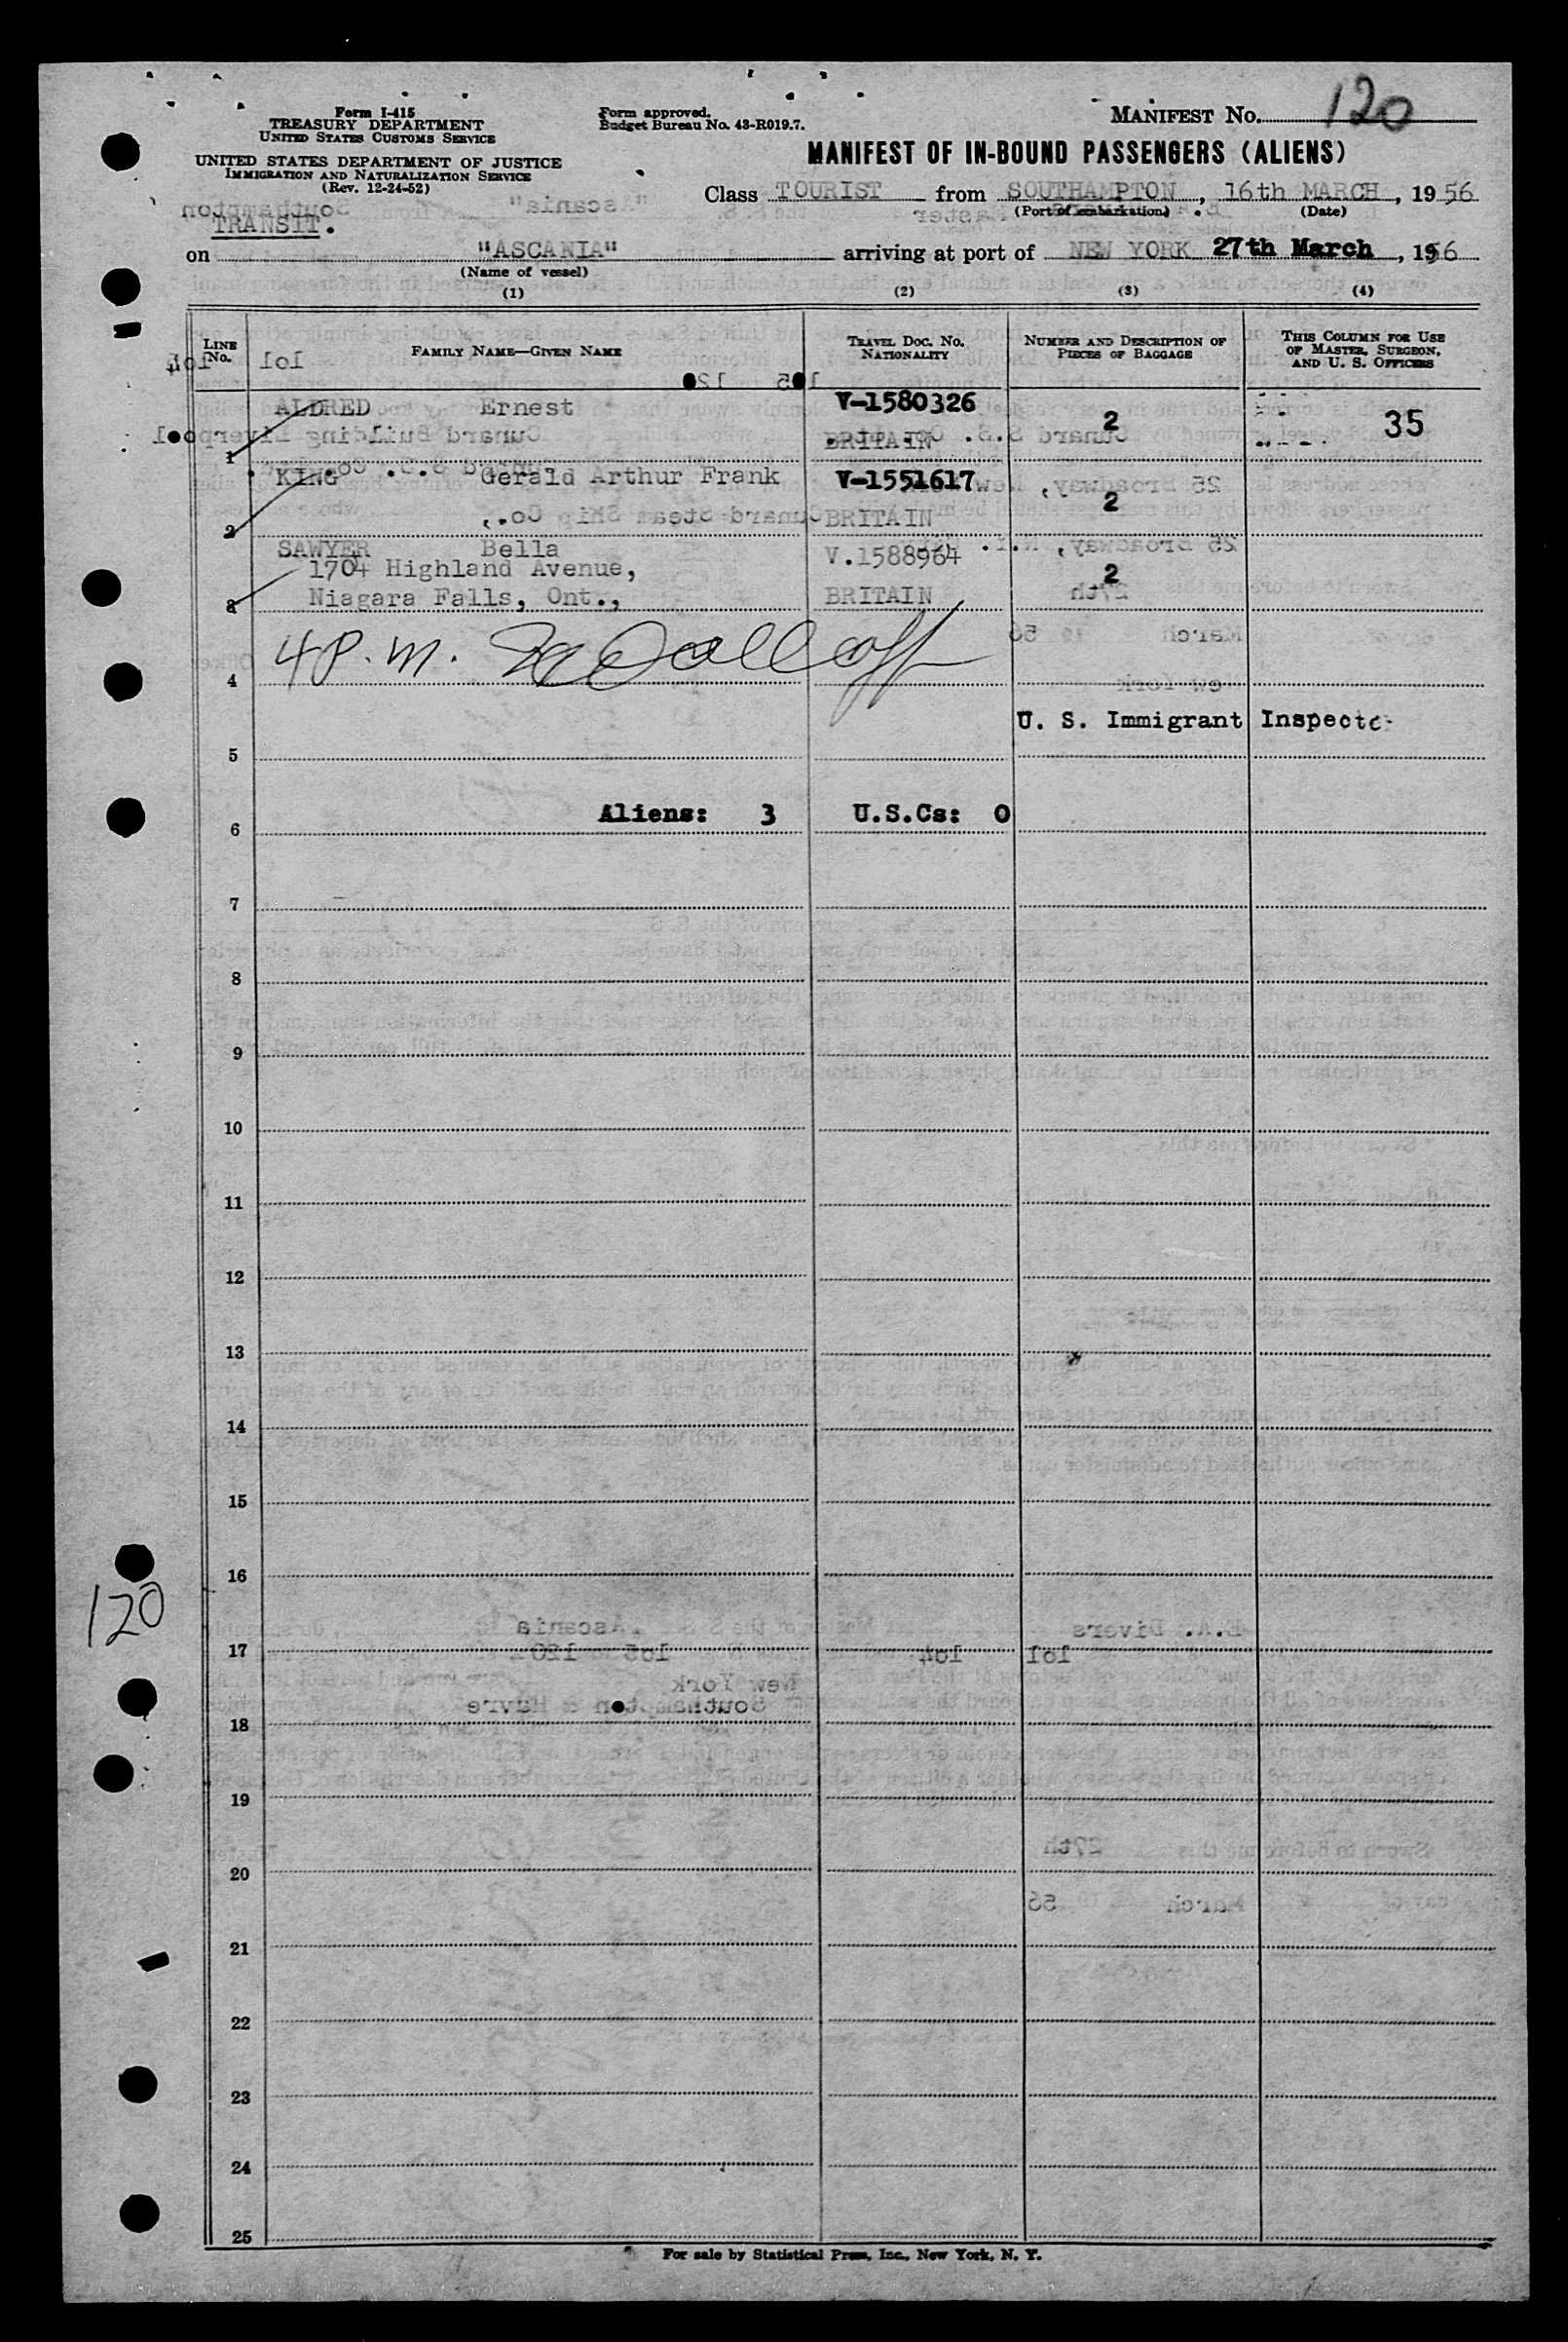 Form I-415
TREASURY DEPARTMENT
UNITED STATES CUSTOMS SERVICE
UNITED STATES DEPARTMENT OF JUSTICE
IMMIGRATION AND NATURALIZATION SERVICE
(Rev. 12-24-52)
Form approved.
Budget Bureau No. 43-R019.7.
MANIFEST No. 120
MANIFEST OF IN-BOUND PASSENGERS (ALIENS)
Class TOURIST from SOUTHAMPTON, 16th MARCH, 1956
(Port of embarkation) (Date)
TRANSIT.
on "ASCANIA" arriving at port of NEW YORK 27th March, 1956
(Name of vessel)
(1) (2) (3) (4)
LINE No. FAMILY NAME—GIVEN NAME TRAVEL DOC. NO. NATIONALITY NUMBER AND DESCRIPTION OF PIECES OF BAGGAGE THIS COLUMN FOR USE OF MASTER, SURGEON, AND U. S. OFFICERS
ALDRED Ernest V-1580326 2 35
1 BRITAIN
KING Gerald Arthur Frank V-1551617 2
2 BRITAIN
SAWYER Bella V.1588964 2
1704 Highland Avenue,
3 Niagara Falls, Ont., BRITAIN
4 P.m.
4
U. S. Immigrant Inspector
5
Aliens: 3 U.S.Cs: 0
6
7
8
9
10
11
12
13
14
15
16
120
17
18
19
20
21
22
23
24
25
For sale by Statistical Press, Inc., New York, N. Y.